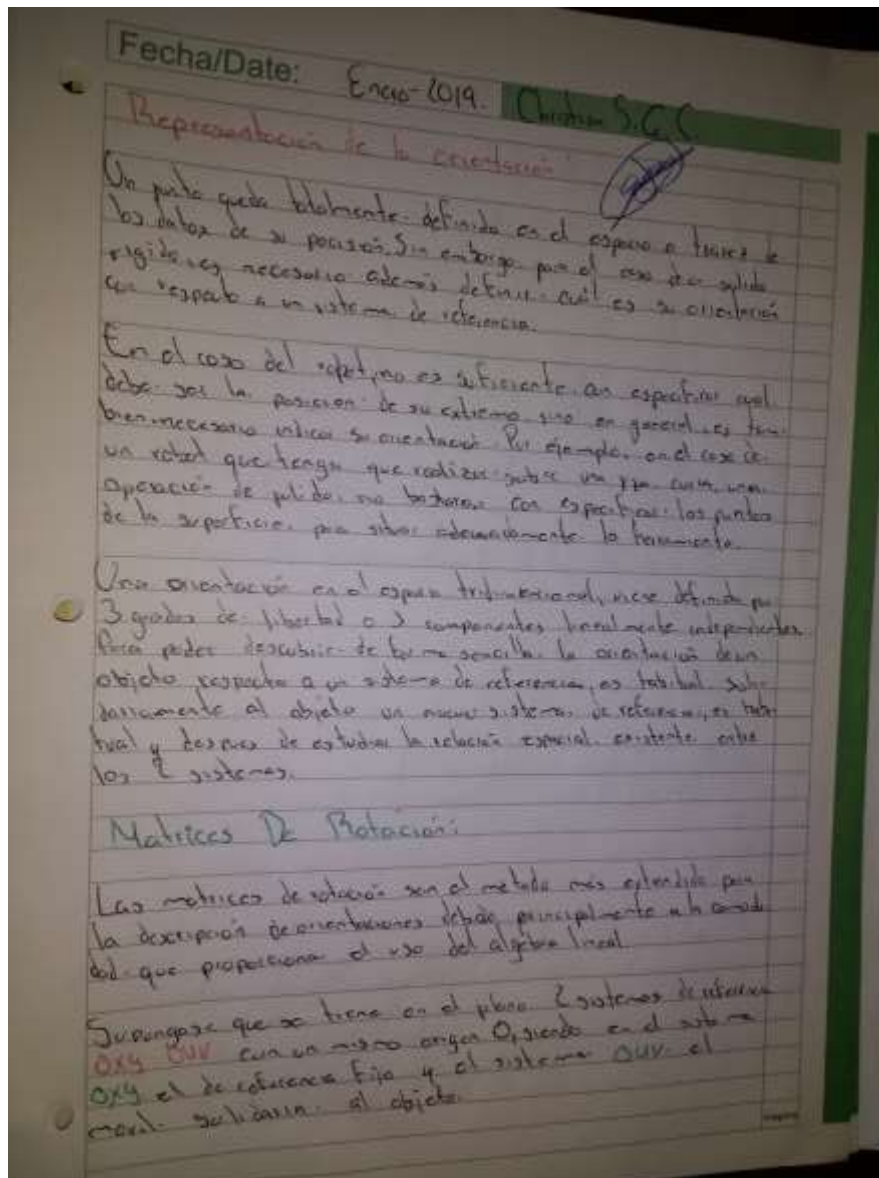 Fecha/Date: Enero-2019. Christian S.C.C.
Representación de la orientación:
Un punto queda totalmente definido en el espacio a travez de
los datos de su posición. Sin embargo, para el caso de un solido
rigido, es necesario además definir cuál es su orientación
con respecto a un sistema de referencia.
En el caso del robot, no es suficiente con especificar cual
debe ser la posición de su extremo, sino en general, es tam-
bien necesario indicar su orientación. Por ejemplo, en el caso de
un robot que tenga que realizar sobre una curva, una
operación de pulido, no bastaria con especificar los puntos
de la superficie, para situar adecuadamente la herramienta.
Una orientación en el espacio tridimensional, viene definida por
3 grados de libertad o 3 componentes linealmente independientes.
Para poder descubrir de forma sencilla la orientación de un
objeto respecto a un sistema de referencia, es habitual soli-
dariamente al objeto un nuevo sistema de referencia, es habi-
tual y despues de estudiar la relación espacial existente entre
los 2 sistemas.
Matrices De Rotación:
Las matrices de rotación son el metodo más extendido para
la descripción de orientaciones debido principalmente a la comodi
dad que proporciona el uso del algebra lineal.
Supongase que se tiene en el plano 2 sistemas de referencia
OXY OUV con un mismo origen O, siendo en el sistema
OXY el de referencia fijo y el sistema OUV el
movil solidario al objeto.